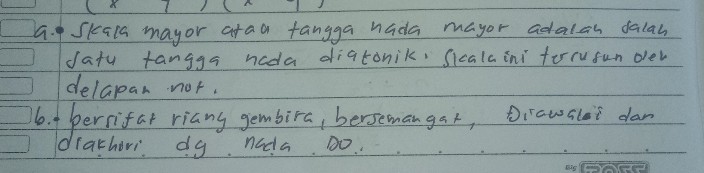 a. • Skala mayor atau tangga nada mayor adalah salah
satu tangga nada diatonik. Skala ini tersusun oleh
delapan not.
b. • bersifat riang gembira, bersemangat, Diawali dan
diakhiri dg nada DO.
BOSS